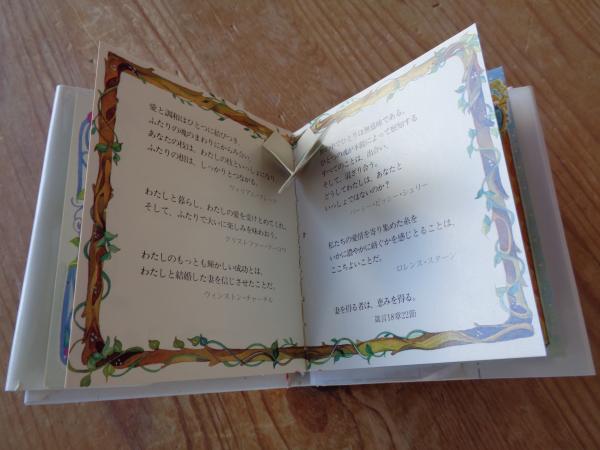 愛と調和はひとつに結びつき、
ふたりの魂のまわりにからみ合い、
あなたの枝は、わたしの枝といっしょになり、
ふたりの根は、しっかりとつながる。
ウィリアム
わたしと暮らし、わたしの愛を受けとめてくれ。
そして、ふたりで大いに楽しみを味わおう。
クリストファー・マーロウ
わたしのもっとも輝かしい成功とは、
わたしと結婚した妻を信じさせたことだ。
ウィンストン・チャーチル
ひとりは無意味である。
ひとつの魂が本能によって感知する
すべてのことは、出合い、
そして、混ざり合う。
どうしてわたしは、あなたと
いっしょではないのか?
パーシー・ビッシー・シェリー
私たちの愛情を寄り集めた糸を
いかに濃やかに紡ぐかを感じとることは、
ここちよいことだ。
ロレンス・スターン
妻を得る者は、恵みを得る。
箴言18章22節